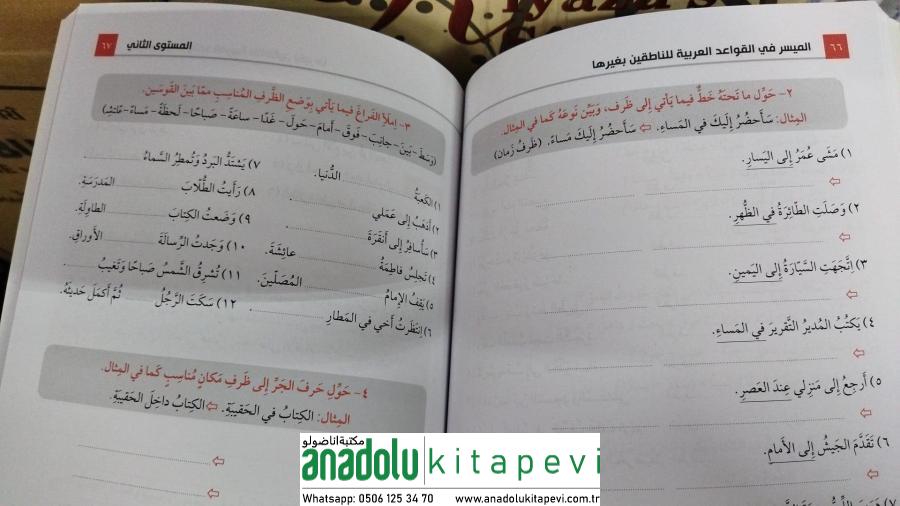 ٦٦
الميسر في القواعد العربية للناطقين بغيرها
٢- حَوِّل ما تَحتَهُ خَطٌّ فيما يَأتي إلى ظَرف، وَبَيِّن نَوعَهُ كَما في المِثال.
المِثال: سَأحضُرُ إلَيكَ في المَساءِ. ⇦ سَأحضُرُ إلَيكَ مَساءً. (ظَرفُ زَمان)
١) مَشَى عُمَرُ إلى اليَسارِ.
٢) وَصَلَتِ الطّائِرَةُ في الظُّهرِ.
٣) اِتَّجَهَتِ السَّيّارَةُ إلى اليَمينِ.
٤) يَكتُبُ المُديرُ التَّقريرَ في المَساءِ.
٥) أَرجِعُ إلى مَنزِلي عِندَ العَصرِ.
٦) تَقَدَّمَ الجَيشُ إلى الأَمامِ.
المستوى الثاني
٦٧
٣- اِملَأِ الفَراغَ فيما يَأتي بِوَضعِ الظَّرفِ المُناسِبِ مِمّا بَينَ القَوسَينِ.
(وَسَطَ – بَينَ – جانِبَ – فَوقَ – أَمامَ – حَولَ – غَدًا – ساعَةً – صَباحًا – لَحظَةً – مَساءً –
١) الكَعبَةُ ........ الدُّنيا.
٢) أَذهَبُ إلى عَمَلي ........ .
٣) سَأُسافِرُ إلى أَنقَرَةَ ........ .
٤) تَجلِسُ فاطِمَةُ ........ عائِشَةَ.
٥) يَقِفُ الإمامُ ........ المُصَلّينَ.
٦) اِنتَظَرتُ أَخي في المَطارِ ........ .
٧) يَشتَدُّ البَردُ وَتُمطِرُ السَّماءُ ........
٨) رَأَيتُ الطُّلّابَ ........ المَدرَسَةِ.
٩) وَضَعتُ الكِتابَ ........ الطاوِلَةِ.
١٠) وَجَدتُ الرِّسالَةَ ........ الأَوراقِ.
١١) تُشرِقُ الشَّمسُ صَباحًا وَتَغيبُ ........
١٢) سَكَتَ الرَّجُلُ ........ ثُمَّ أَكمَلَ حَديثَهُ.
٤- حَوِّل حَرفَ الجَرِّ إلى ظَرفِ مَكانٍ مُناسِبٍ كَما في المِثال.
المِثال: الكِتابُ في الحَقيبَةِ. ⇦ الكِتابُ داخِلَ الحَقيبَةِ.
مكتبة اناضولو
anadolu kitapevi
Whatsapp: 0506 125 34 70 www.anadolukitapevi.com.tr